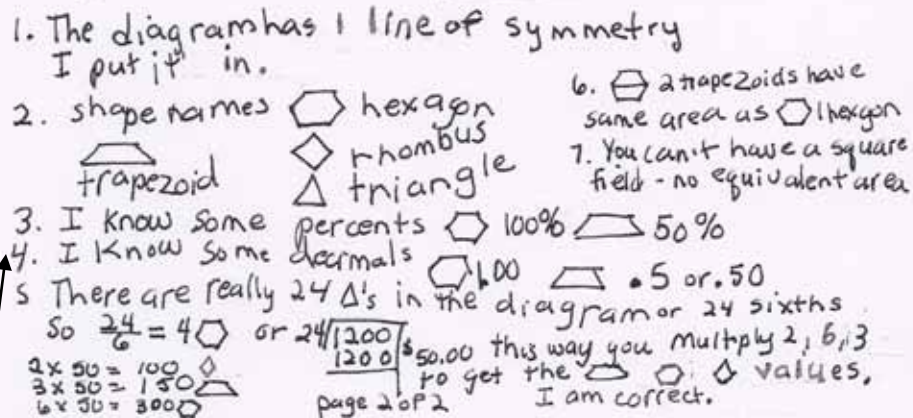 1. The diagram has 1 line of symmetry
I put it in.
2. shape names hexagon
rhombus
trapezoid
triangle
3. I know some percents 100% 50%
4. I know some decmals 1.00 .5 or .50
5 There are really 24 Δ's in the diagram or 24 sixths
So 24/6 = 4 or 24 1200 $50.00 this way you multiply 2, 6, 3
1200
to get the values.
I am correct.
2 x 50 = 100
3 x 50 = 150
6 x 50 = 300
page 2 of 2
6. 2 trapezoids have
same area as 1 hexgon
7. You can't have a square
field - no equivalent area